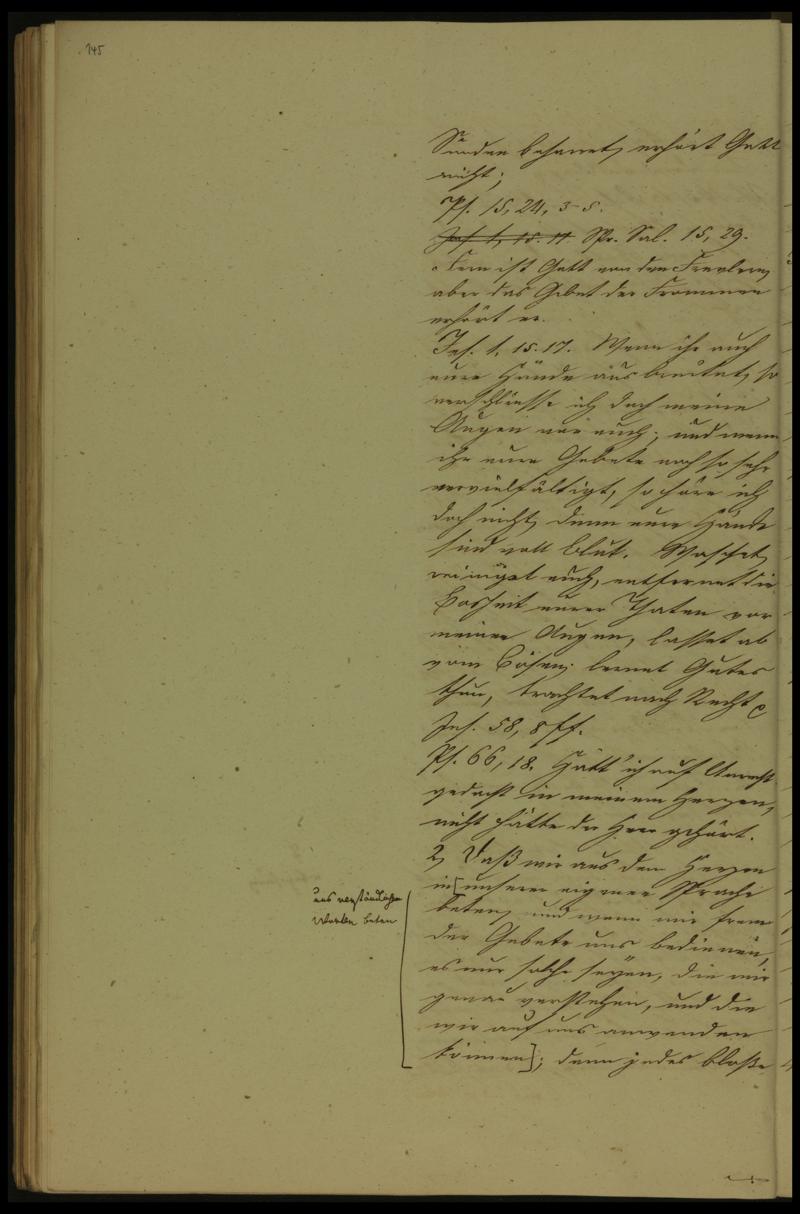 145
Sünden beharret, erhört Gott
nicht;
Ps. 15, 24, 3-5.
Jes. 1, 15. 17. Spr. Sal. 15, 29.
Fern ist Gott von den Frevlern,
aber das Gebet der Frommen
erhört er.
Jes. 1, 15. 17. Wenn ihr auch
eure Hände ausbreitet, so
verschliesse ich doch meine
Augen vor euch; und wenn
ihr eure Gebete noch so sehr
vervielfältigt, so höre ich
doch nicht, denn eure Hände
sind voll Blut. Waschet,
reiniget euch, entfernet die
Bosheit eurer Thaten vor
meinen Augen, lasset ab
vom Bösen; lernet Gutes
thun, trachtet nach Recht
Jes. 58, 8 ff.
Ps. 66, 18. Hätt' ich auf Unrecht
gedacht in meinem Herzen,
nicht hätte der Herr gehört.
2, Daß wir aus dem Herzen
in [unserer eigenen Sprache
beten, und wenn wir frem
der Gebete uns bedienen,
es nur solche seyen, die wir
genau verstehen, und die
wir auf uns anwenden
können]; denn jedes bloße
uns verständlichen
Worten beten